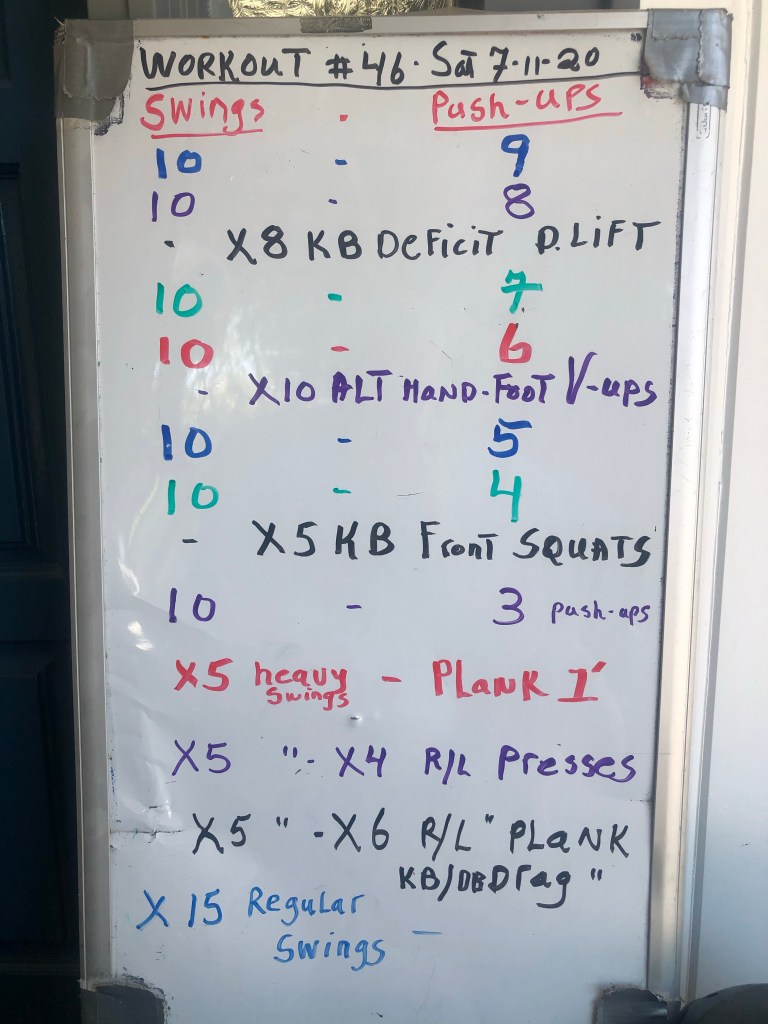 WORKOUT #46. Sat 7-11-20
Swings - Push-ups
10 - 9
10 - 8
- X8 KB Deficit D.Lift
10 - 7
10 - 6
- X10 ALT Hand-Foot V-ups
10 - 5
10 - 4
- X5 KB Front SQUATS
10 - 3 push-ups
X5 heavy swings - PLANK 1'
X5 " - X4 R/L Presses
X5 " - X6 R/L "PLANK
KB/DB Drag "
X 15 Regular
Swings -